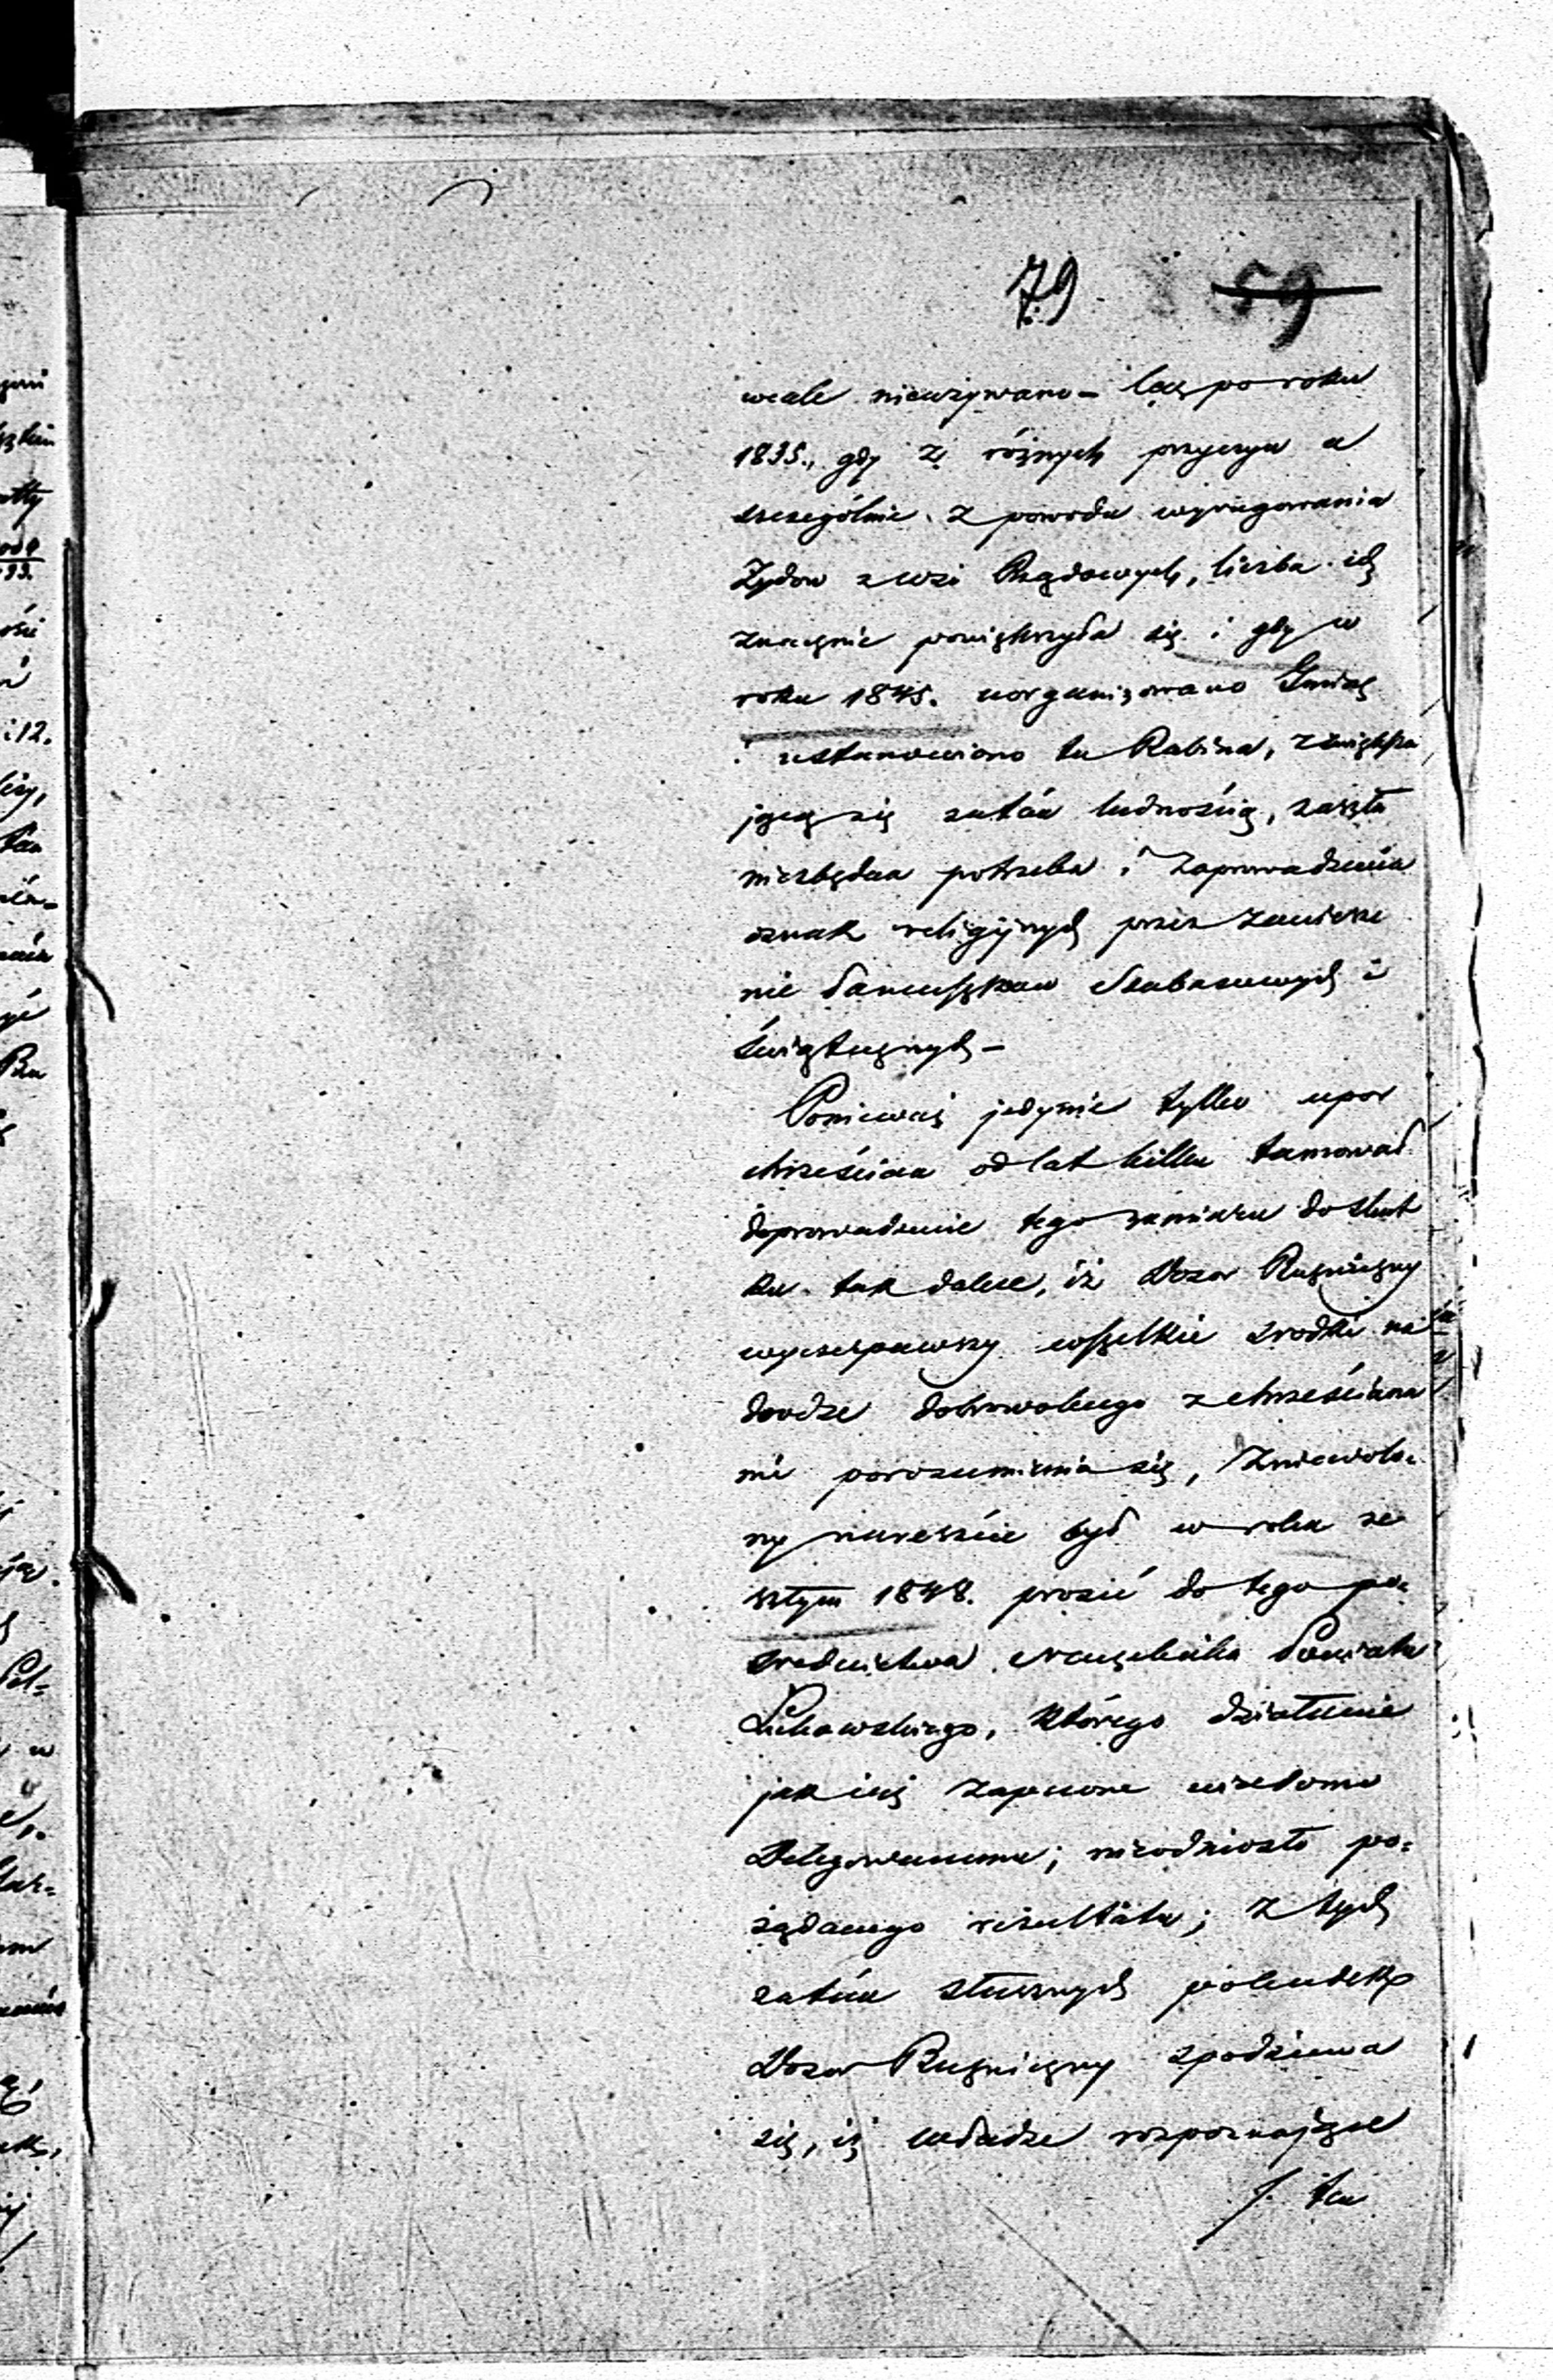 79 59
wcale nieużywano – lecz po roku
1835., gdy z różnych przyczyn a
szczególnie z powodu wyrugowania
Żydow z wsi Rządowych, liczba ich
znacznie powiększyła się i gdy w
roku 1845. uorganizowano Gminę
i ustanowiono tu Rabina, z zwiększa
jącą się zatém ludnością, zaszła
niezbędna potrzeba i zaprowadzenia
oznak religijnych przez zawiesze
nie Łancuszkow Szabasowych i
świątecznych –
Ponieważ jedynie tylko upor
chrześcian od lat kilku tamował
doprowadzenie tego zamiaru do skut
ku tak dalece, iż Dozor Bużniczny
wyczerpawszy wszelkie srodki na
drodze dobrowolnego z chrześciana
mi porozumienia się, zniewolo-
ny nareszcie był w roku ze
szłym 1848. prosić do tego po-
srednictwa Naczelnika Powiatu
którego działanie
jak iuż zapewne wiadomo
Delegowanemu; nieodniosło po-
żądanego rezultatu; z tych
zatém słusznych pobudek
Dozor Bużniczny spodziewa
się, iż władze rozpoznające
/. tu